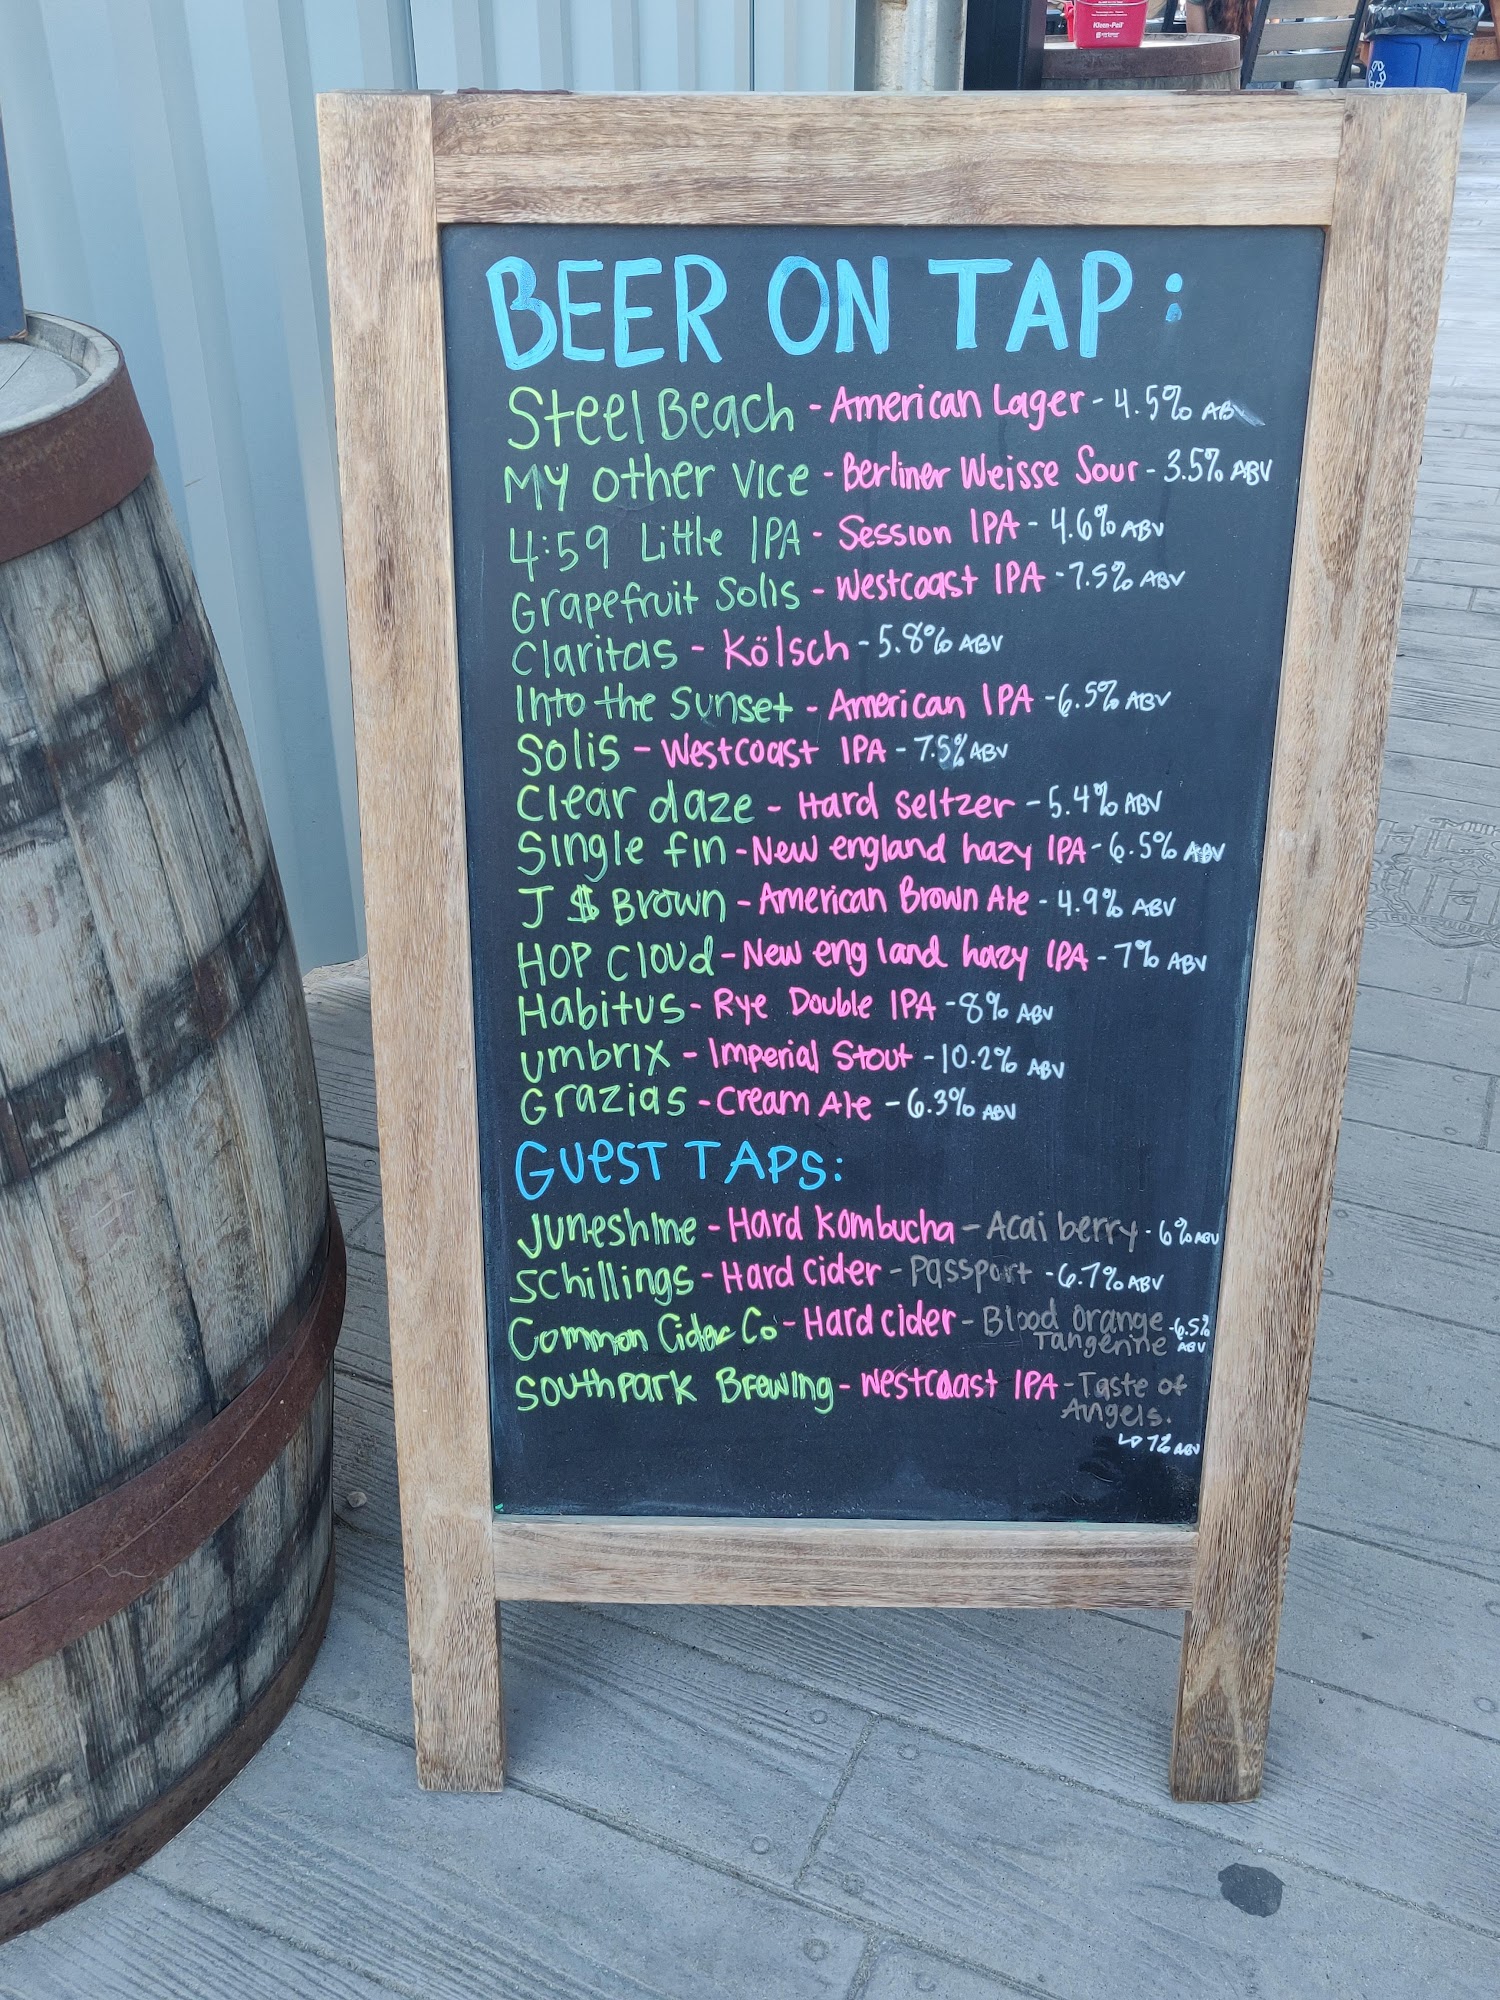 Kleen-Pail
BEER ON TAP:
Steel Beach - American Lager - 4.5% AB
My other vice - Berliner Weisse Sour - 3.5% ABV
4:59 Little IPA - Session IPA - 4.6% ABV
Grapefruit Solis - Westcoast IPA - 7.5% ABV
Claritas - Kölsch - 5.8% ABV
Into the Sunset - American IPA - 6.5% ABV
Solis - Westcoast IPA - 7.5% ABV
Clear daze - Hard Seltzer - 5.4% ABV
Single fin - New england hazy IPA - 6.5% ABV
J $ Brown - American Brown Ale - 4.9% ABV
HOP Cloud - New england hazy IPA - 7% ABV
Habitus - Rye Double IPA - 8% ABV
umbrix - Imperial Stout - 10.2% ABV
Grazias - Cream Ale - 6.3% ABV
GUEST TAPS:
Juneshine - Hard Kombucha - Acai berry - 6% ABV
Schillings - Hard Cider - Passport - 6.7% ABV
Common Cider Co - Hard cider - Blood Orange - 6.5%
Tangerine ABV
Southpark Brewing - Westcoast IPA - Taste of
Angels.
7% ABV